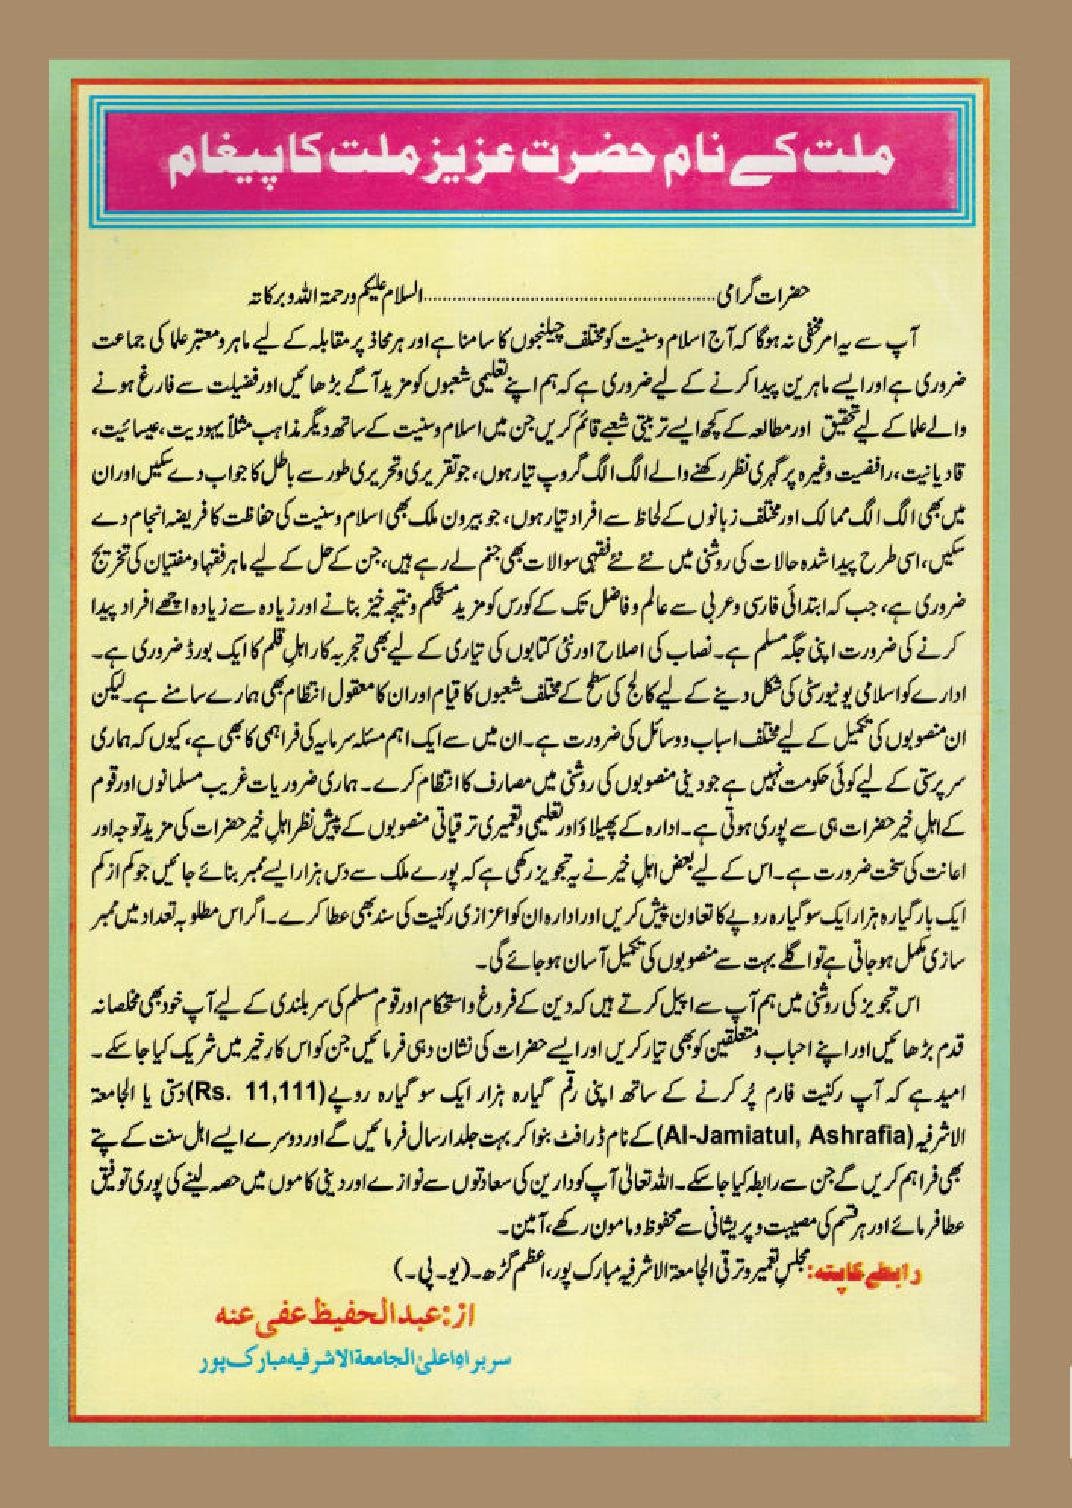 ملت کے نام حضرت عزیز ملت کا پیغام
حضرات گرامی........................................................................السلام علیکم ورحمۃ اللہ وبرکاتہ
آپ سے یہ امر مخفی نہ ہوگا کہ آج اسلام وسنیت کو مختلف چیلنجوں کا سامنا ہے اور ہر محاذ پر مقابلہ کے لیے ماہر ومعتبر علما کی جماعت
ضروری ہے اور ایسے ماہرین پیدا کرنے کے لیے ضروری ہے کہ ہم اپنے تعلیمی شعبوں کو مزید آگے بڑھائیں اور فضیلت سے فارغ ہونے
والے علما کے لیے تحقیق اور مطالعہ کے کچھ ایسے تربیتی شعبے قائم کریں جن میں اسلام وسنیت کے ساتھ دیگر مذاہب مثلاً یہودیت، عیسائیت،
قادیانیت، رافضیت وغیرہ پر گہری نظر رکھنے والے الگ الگ گروپ تیار ہوں، جو تقریری وتحریری طور سے باطل کا جواب دے سکیں اور ان
میں بھی الگ الگ ممالک اور مختلف زبانوں کے لحاظ سے افراد تیار ہوں، جو بیرون ملک بھی اسلام وسنیت کی حفاظت کا فریضہ انجام دے
سکیں، اسی طرح پیدا شدہ حالات کی روشنی میں نئے نئے فقہی سوالات بھی جنم لے رہے ہیں، جن کے حل کے لیے ماہر فقہا ومفتیان کی تخریج
ضروری ہے، جب کہ ابتدائی فارسی وعربی سے عالم وفاضل تک کے کورس کو مزید مستحکم ونتیجہ خیز بنانے اور زیادہ سے زیادہ اچھے افراد پیدا
کرنے کی ضرورت اپنی جگہ مسلم ہے۔ نصاب کی اصلاح اور نئی کتابوں کی تیاری کے لیے بھی تجربہ کار اہلِ قلم کا ایک بورڈ ضروری ہے۔
ادارے کو اسلامی یونیورسٹی کی شکل دینے کے لیے کالج کی سطح کے مختلف شعبوں کا قیام اور ان کا معقول انتظام بھی ہمارے سامنے ہے۔ لیکن
ان منصوبوں کی تکمیل کے لیے مختلف اسباب ووسائل کی ضرورت ہے۔ ان میں سے ایک اہم مسئلہ سرمایہ کی فراہمی کا بھی ہے، کیوں کہ ہماری
سرپرستی کے لیے کوئی حکومت نہیں ہے جو دینی منصوبوں کی روشنی میں مصارف کا انتظام کرے۔ ہماری ضروریات غریب مسلمانوں اور قوم
کے اہلِ خیر حضرات ہی سے پوری ہوتی ہے۔ ادارہ کے پھیلاؤ اور تعلیمی وتعمیری ترقیاتی منصوبوں کے پیش نظر اہلِ خیر حضرات کی مزید توجہ اور
اعانت کی سخت ضرورت ہے۔ اس کے لیے بعض اہلِ خیر نے یہ تجویز رکھی ہے کہ پورے ملک سے دس ہزار ایسے ممبر بنائے جائیں جو کم از کم
ایک بار گیارہ ہزار ایک سو گیارہ روپے کا تعاون پیش کریں اور ادارہ ان کو اعزازی رکنیت کی سند بھی عطا کرے۔ اگر اس مطلوبہ تعداد میں ممبر
سازی مکمل ہو جاتی ہے تو اگلے بہت سے منصوبوں کی تکمیل آسان ہو جائے گی۔
اس تجویز کی روشنی میں ہم آپ سے اپیل کرتے ہیں کہ دین کے فروغ واستحکام اور قوم مسلم کی سربلندی کے لیے آپ خود بھی مخلصانہ
قدم بڑھائیں اور اپنے احباب ومتعلقین کو بھی تیار کریں اور ایسے حضرات کی نشان دہی فرمائیں جن کو اس کار خیر میں شریک کیا جا سکے۔
امید ہے کہ آپ رکنیت فارم پُر کرنے کے ساتھ اپنی رقم گیارہ ہزار ایک سو گیارہ روپے (Rs. 11,111) دستی یا الجامعۃ
الاشرفیہ (Al-Jamiatul, Ashrafia) کے نام ڈرافٹ بنوا کر بہت جلد ارسال فرمائیں گے اور دوسرے ایسے اہل سنت کے پتے
بھی فراہم کریں گے جن سے رابطہ کیا جا سکے۔ اللہ تعالیٰ آپ کو دارین کی سعادتوں سے نوازے اور دینی کاموں میں حصہ لینے کی پوری توفیق
عطا فرمائے اور ہر قسم کی مصیبت وپریشانی سے محفوظ ومامون رکھے، آمین۔
رابطے کا پتہ: مجلسِ تعمیر وترقی الجامعۃ الاشرفیہ مبارک پور، اعظم گڑھ۔ (یو۔ پی۔)
از: عبدالحفیظ عفی عنہ
سربراہ اعلیٰ الجامعۃ الاشرفیہ مبارک پور